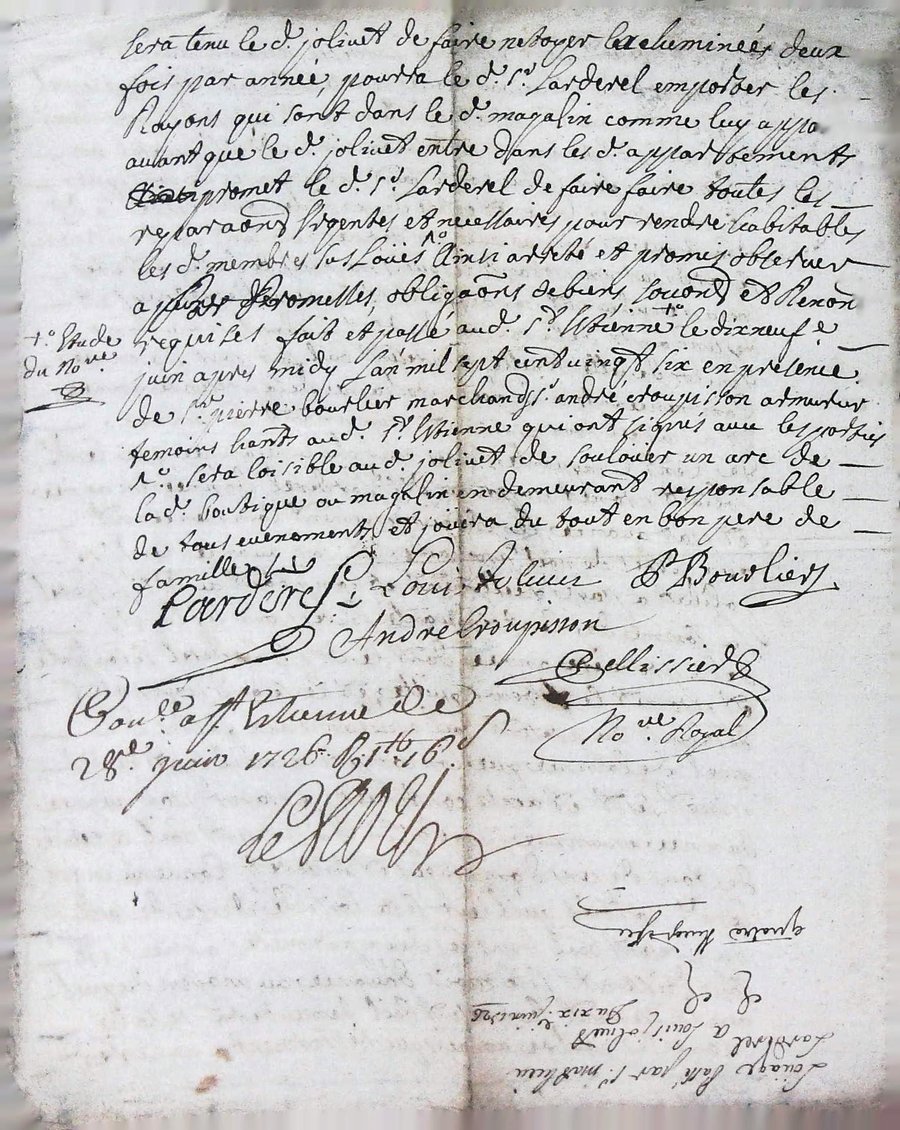 sera tenu le d. jolivet de faire netoyer les cheminées deux
fois par année, pourra le d. Sr. Larderel emporter les
Rayons qui sont dans le d. magasin comme luy appa.
avant que le d. jolivet entre dans les d. appartements
promet le d. Sr. Larderel de faire faire toutes les
reparaons Urgentes et necessaires pour rendre habitables
les d. membres sus Loüés Ainsi arreté et promis observer
a promesses, obligaons de biens soumons et Renon
requises fait et passé aud. St. Etienne +o le dix neufe
+o Etude
du Nore.
juin apres midy L'an mil sept cent vingt six en presence
de Sre. pierre bourlier marchand Sr. andré croupisson armurier
temoins hants aud. St. Etienne qui ont signés avec les parties
sera loisible aud. jolivet de soulouer un arc de
lad. boutique ou magasin en demeurant responsable
de tous evenements et jouira du tout en bon pere de
famille
Larderel Louis Jolivet P Bourlier
Andre Croupisson
Pellissier
Nore. Royal
Con.le a St Etienne le
28e. juin 1726 R 1tt 16s
Loüage passé par Sr. mathieu
Larderel a Louis jolivet
Du xix. juin 1726